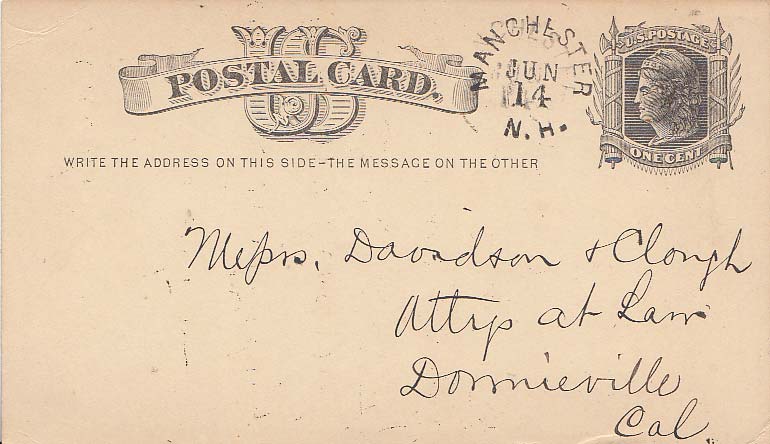 POSTAL CARD.
MANCHESTER
JUN
14
N.H.
U.S. POSTAGE
ONE CENT
WRITE THE ADDRESS ON THIS SIDE-THE MESSAGE ON THE OTHER
Messrs. Davidson & Clough
Attys at Law
Downieville
Cal.